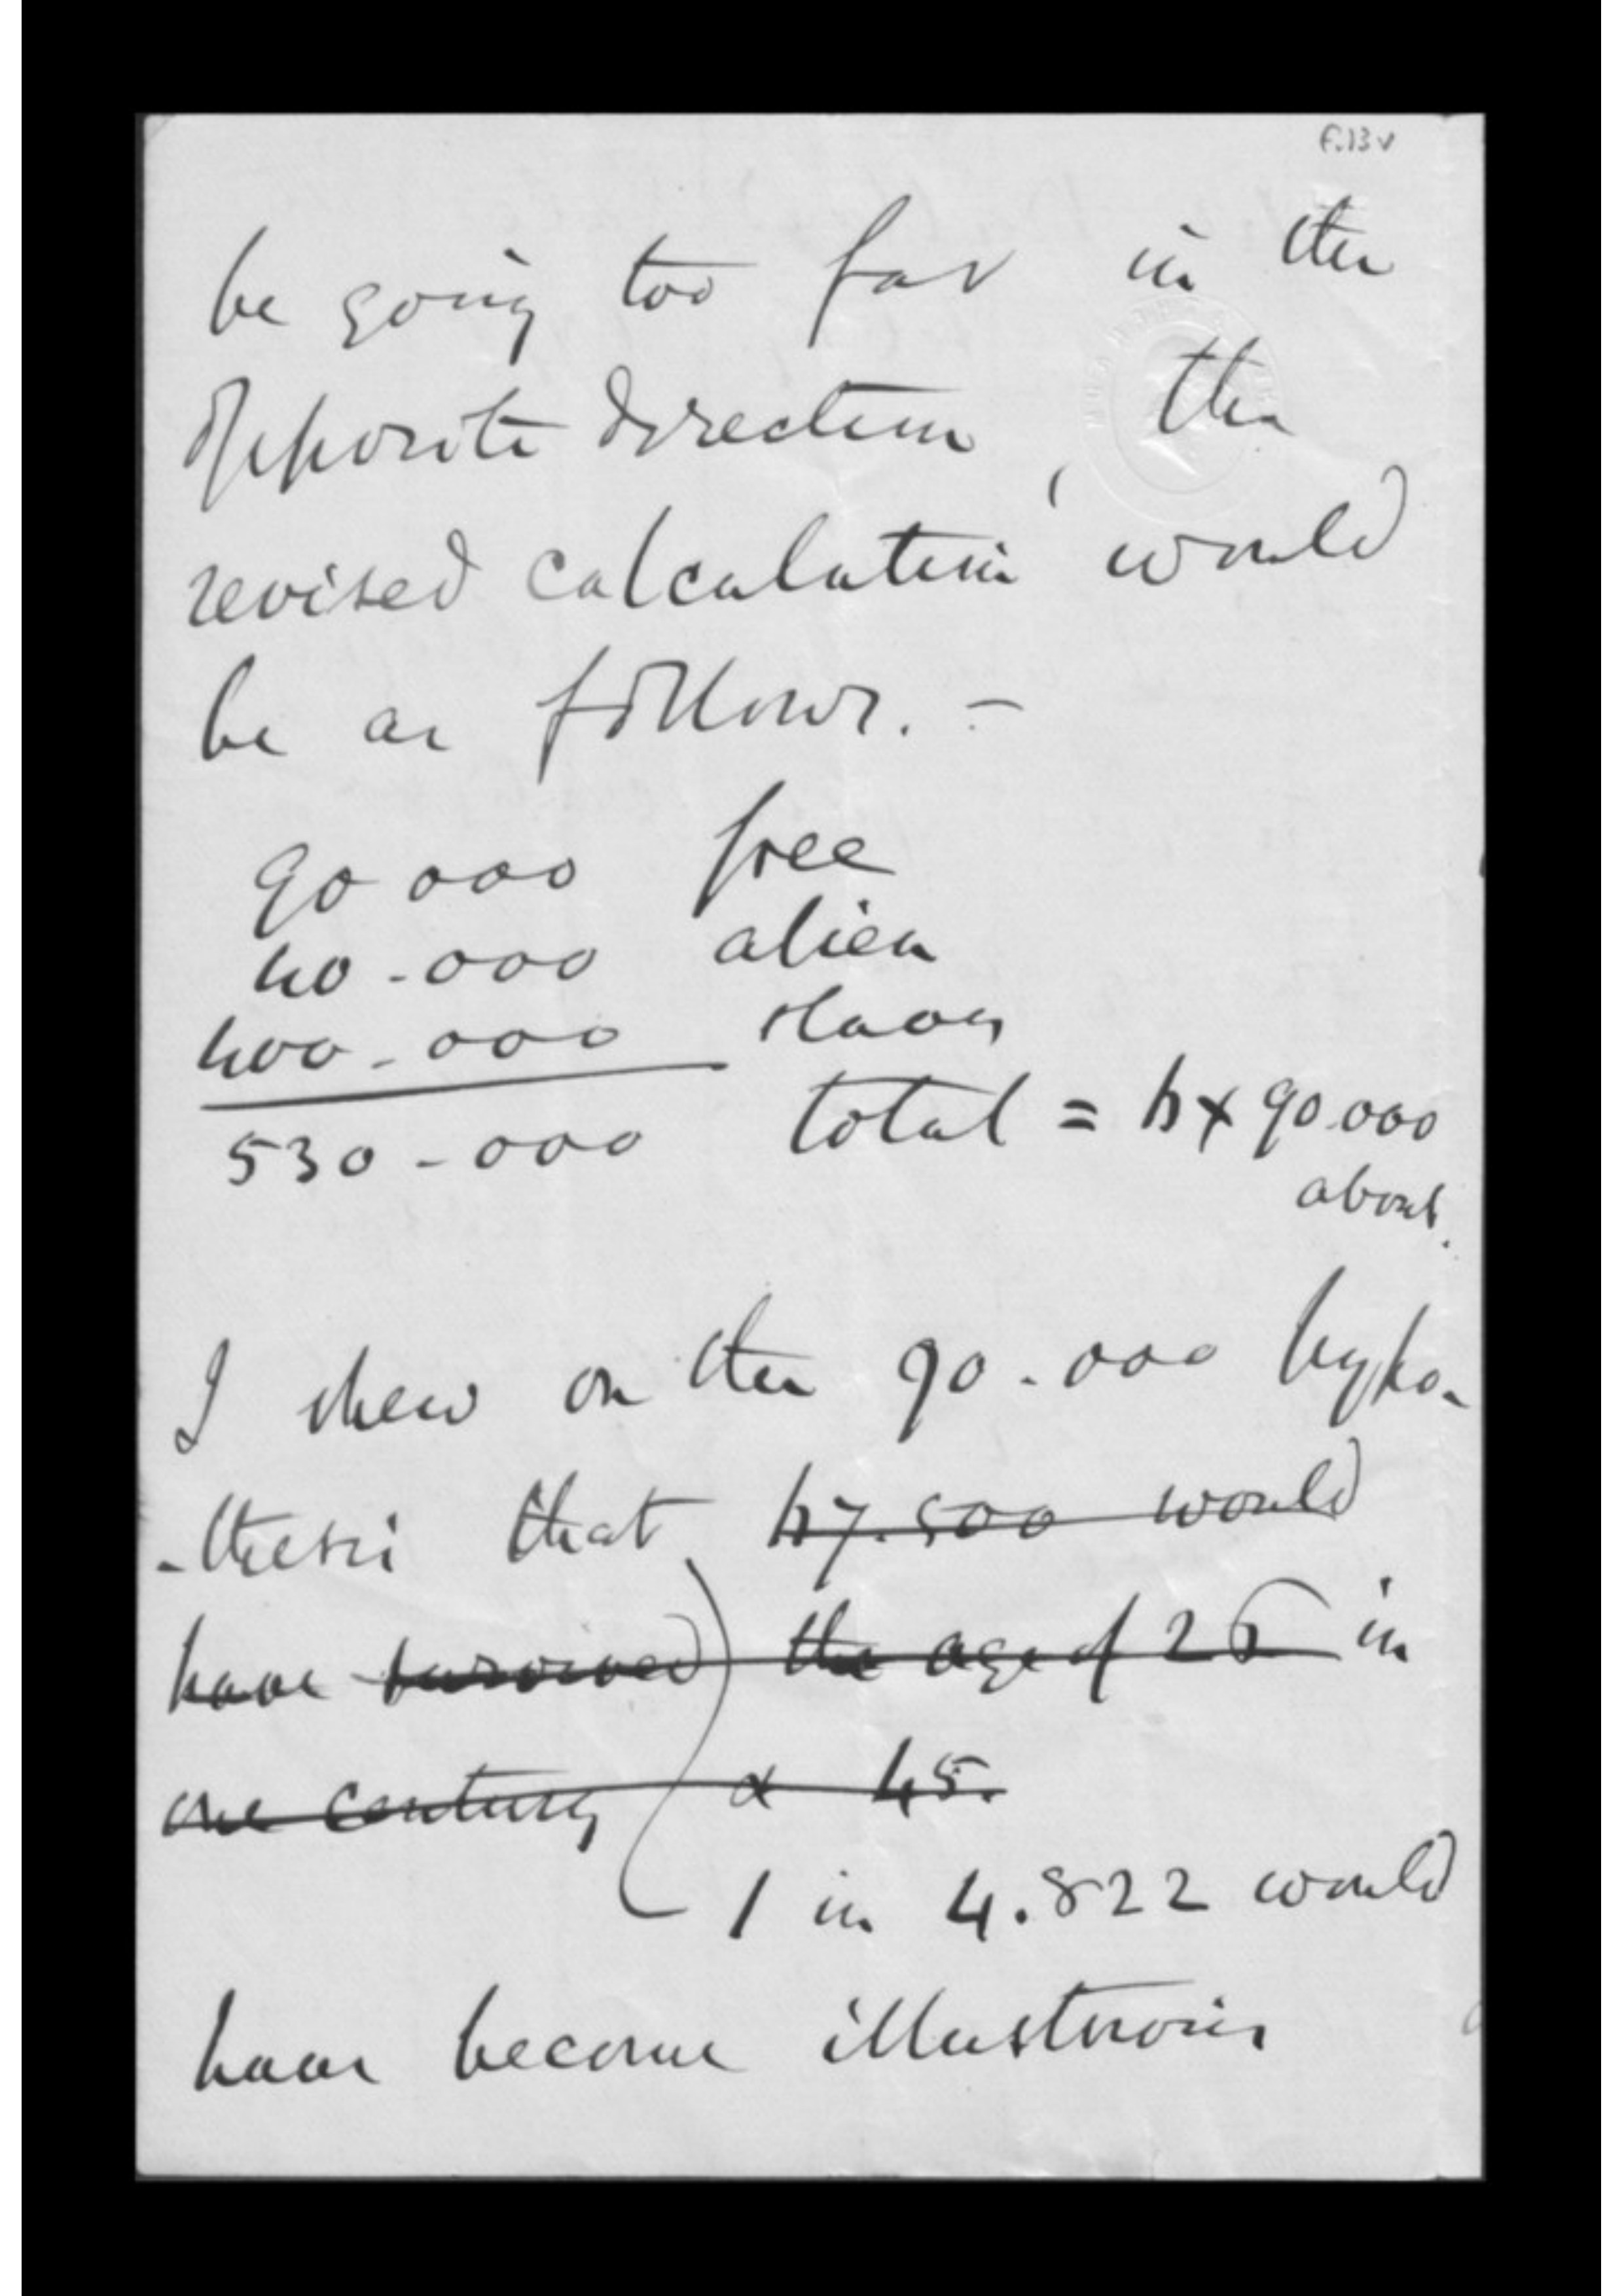 F.13v
be going too far in the
opposite direction, the
revised calculation would
be as follows. –
90 000 free
40-000 alien
400-000 slaves
530-000 total = 6 x 90.000
about.
I shew on the 90.000 hypo-
-thesis that 47.500 would
have survived the age of 26 in
one century & 45.
1 in 4.822 would
have become illustrious